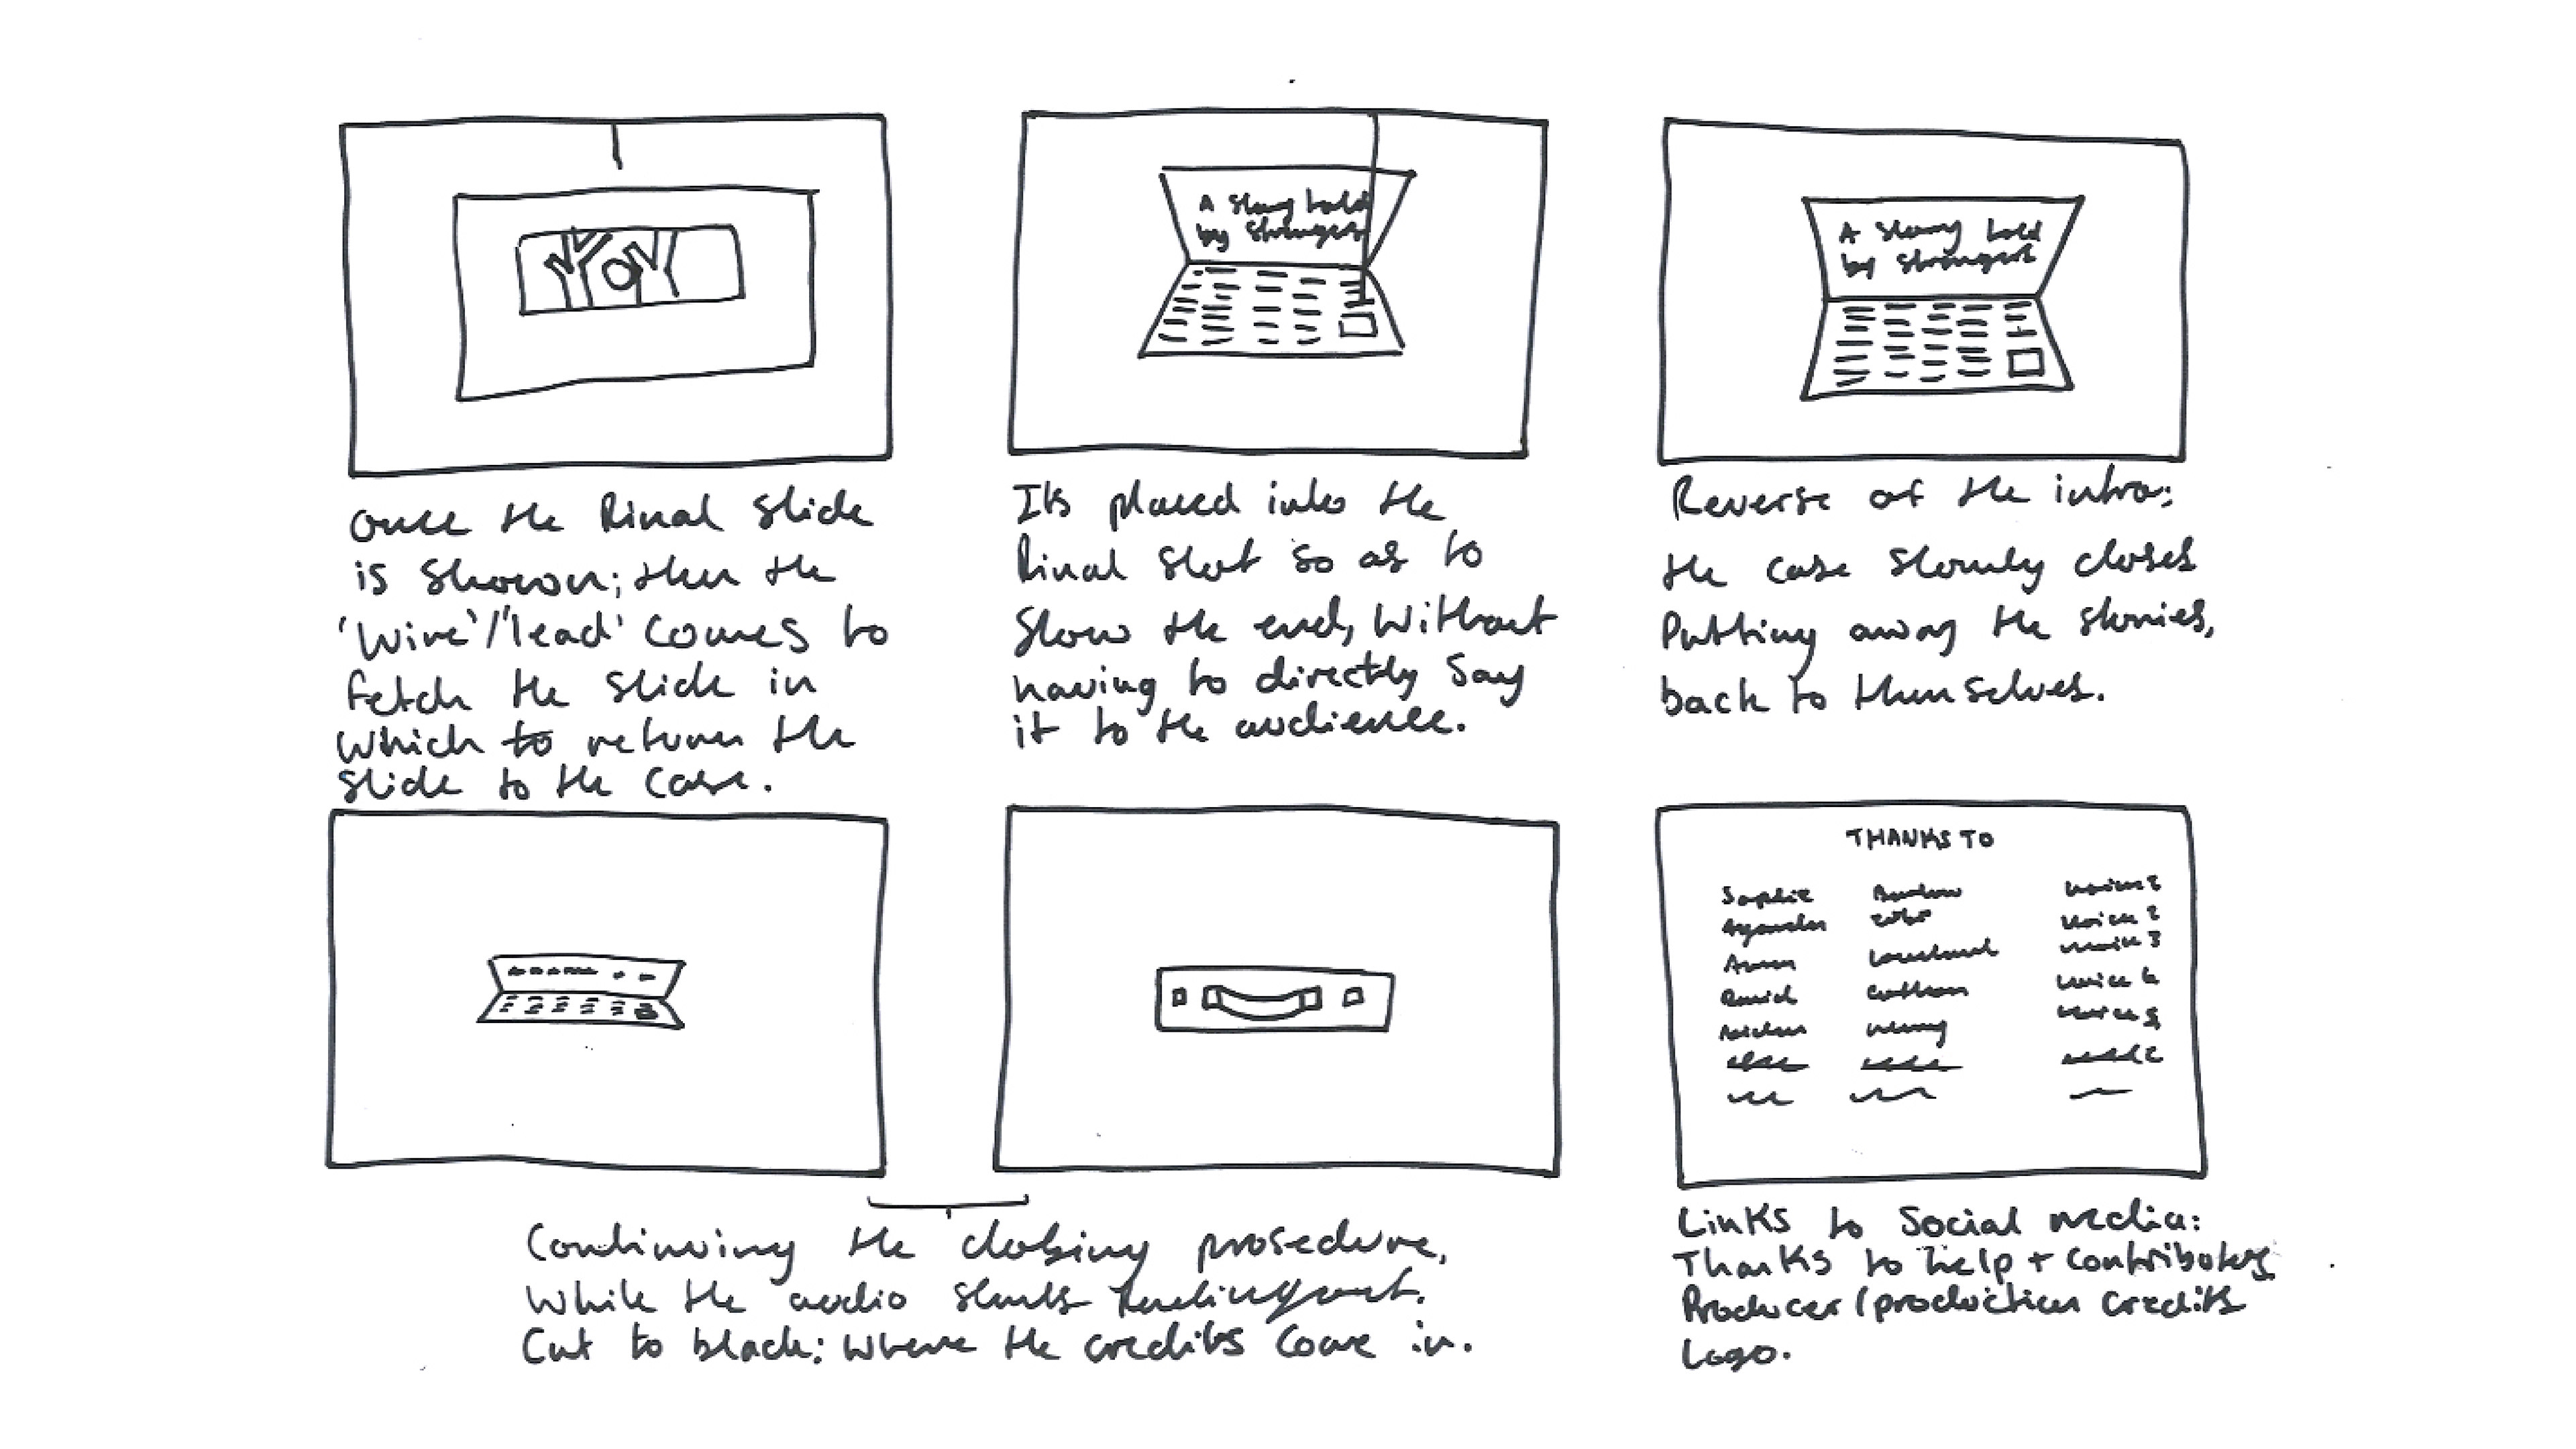 A Story told
by Strangers
A Story told
by Strangers
Once the final slide
is shown; then the
'Wire'/'lead' comes to
fetch the slide in
which to return the
slide to the case.
Its placed into the
final slot so as to
Show the end, Without
having to directly Say
it to the audience.
Reverse of the intro:
the case slowly closes
Putting away the stories,
back to themselves.
THANKS TO
Sophie
David
Voice 2
Voice 3
Voice 5
Continuing the closing prosedure,
While the audio starts fading out.
Cut to black: Where the credits Come in.
Links to Social media:
Thanks to help + contributors
Producer/production credits
Logo.